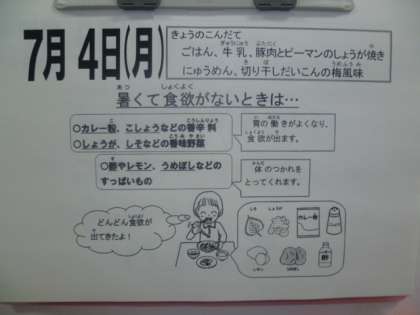 7月 4日(月)
きょうのこんだて
ごはん、牛乳、豚肉とピーマンのしょうが焼き
にゅうめん、切り干しだいこんの梅風味
暑くて食欲がないときは…
○カレー粉、こしょうなどの香辛料
○しょうが、しそなどの香味野菜
胃の働きがよくなり、
食欲が出ます。
○酢やレモン、うめぼしなどの
すっぱいもの
体のつかれを
とってくれます。
どんどん食欲が
出てきたよ！
しそ
しょうが
カレー粉
レモン